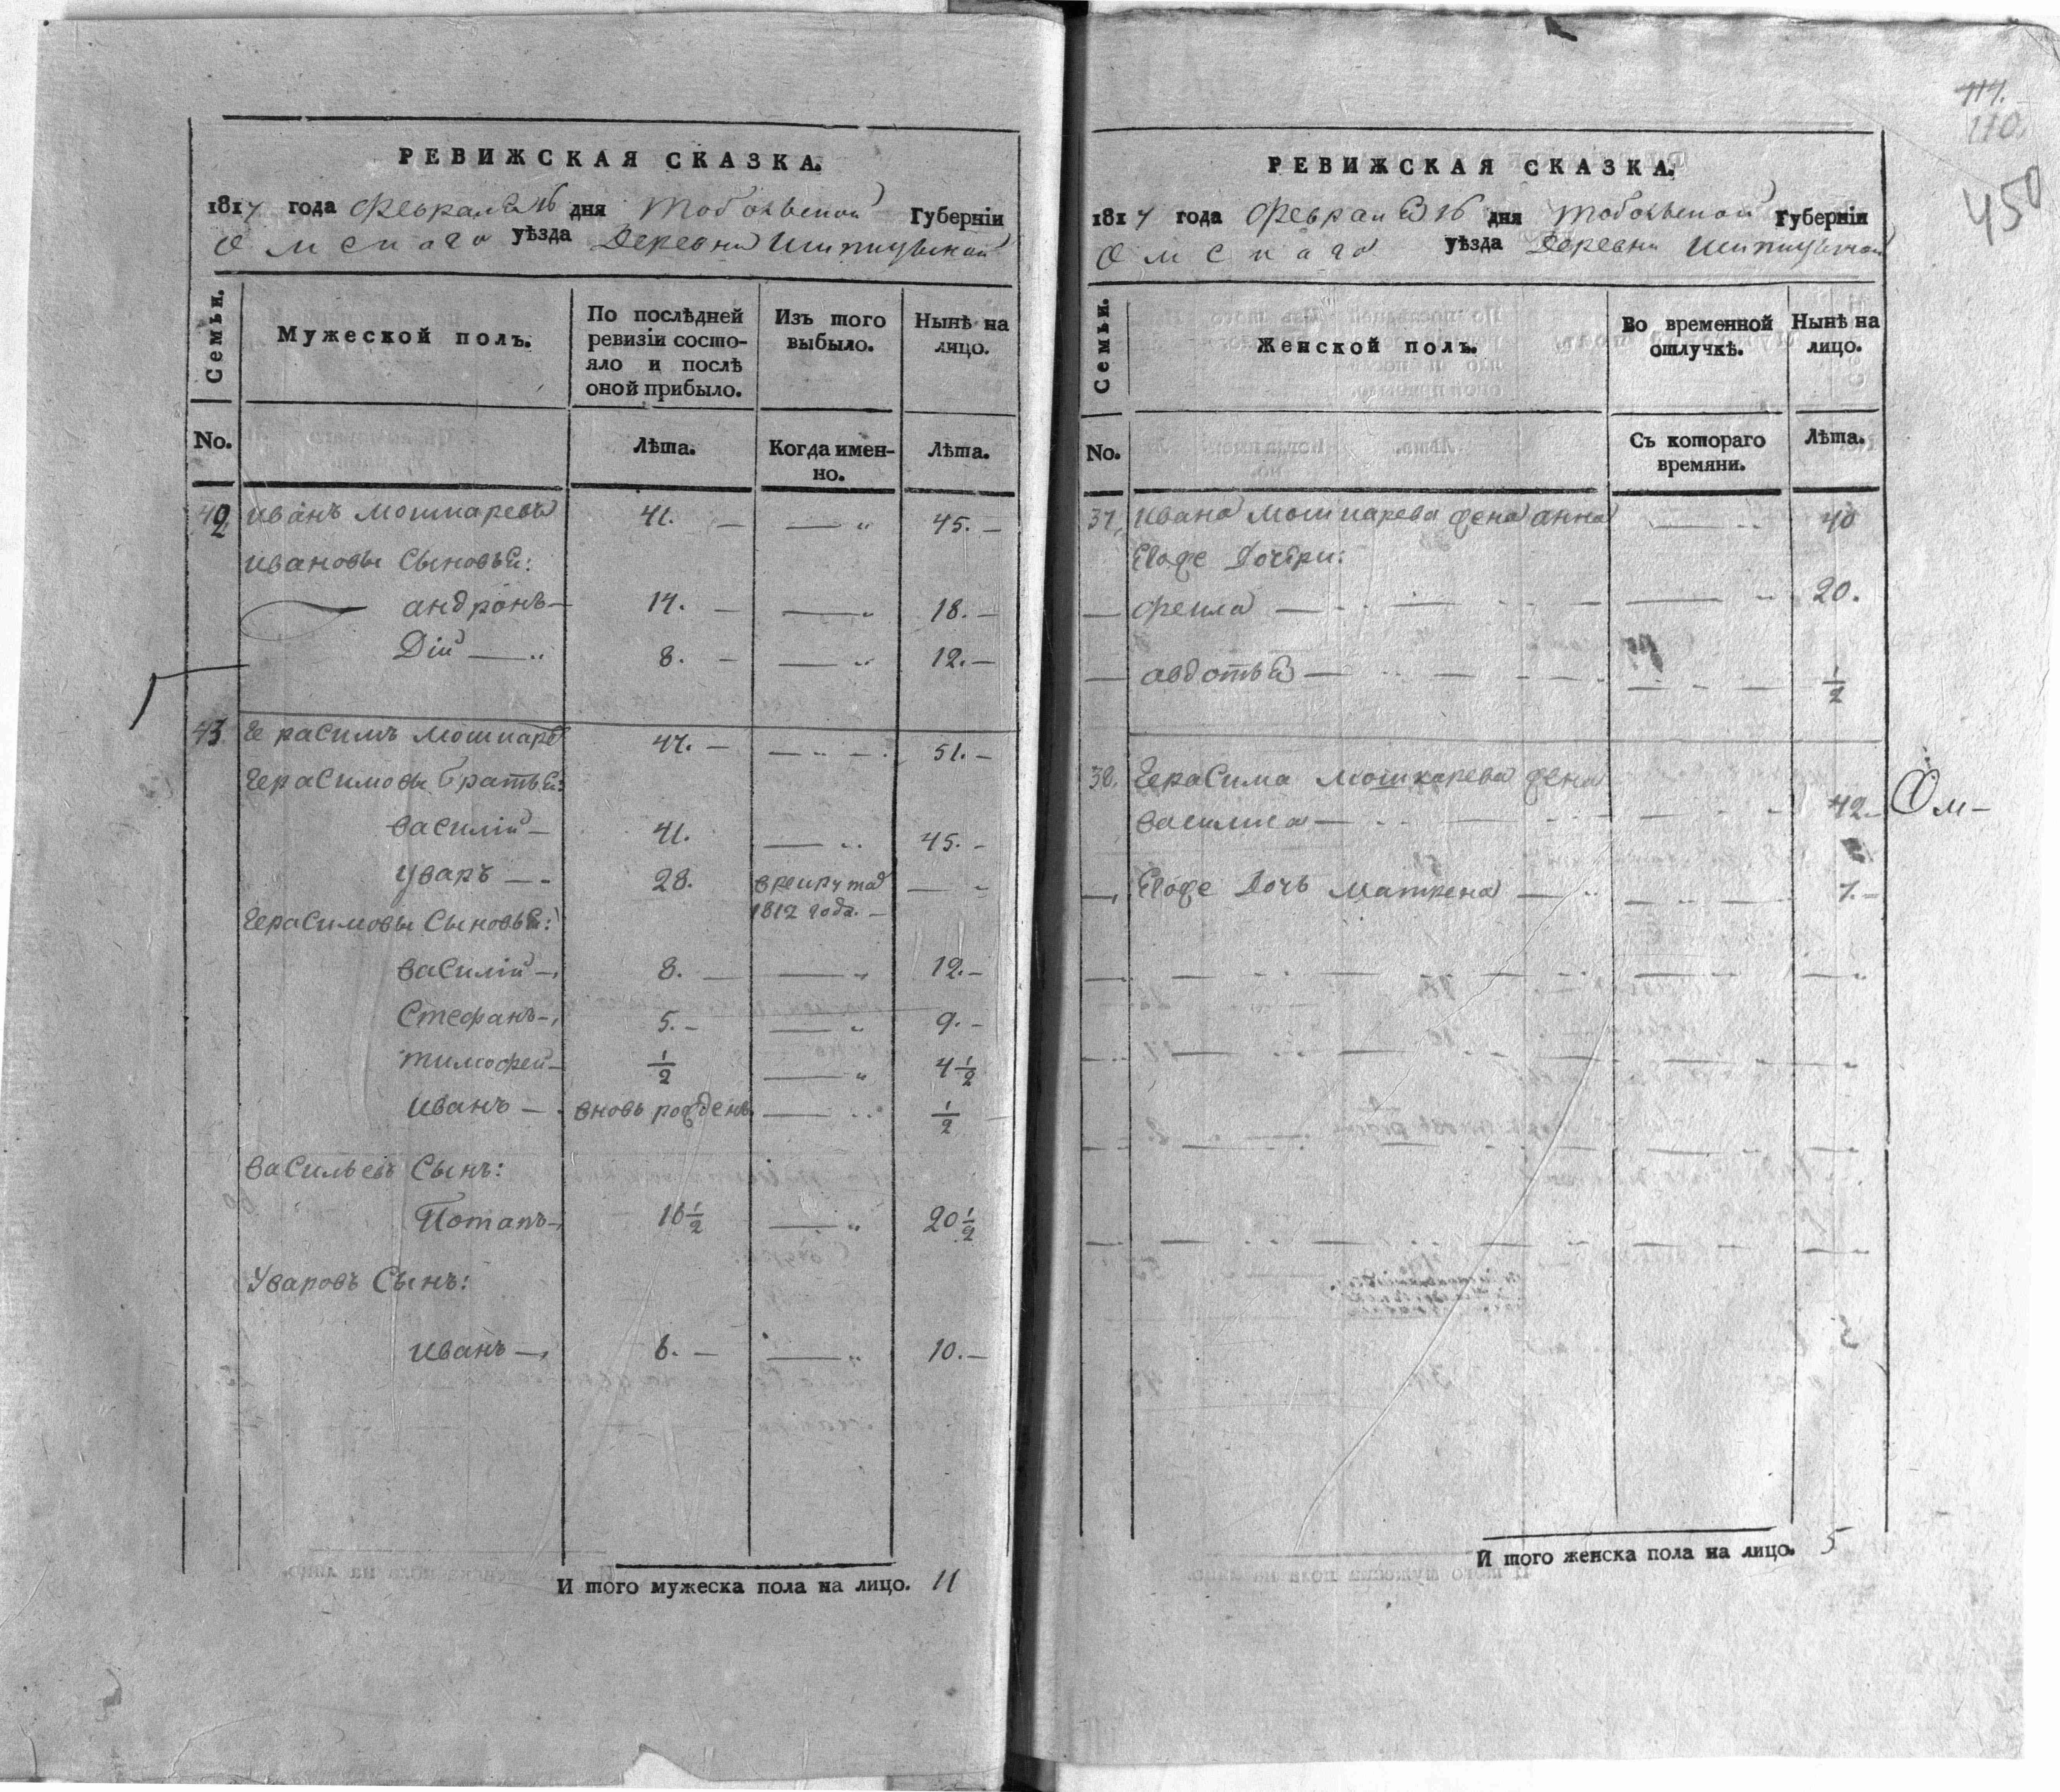 РЕВИЖСКАЯ СКАЗКА.
1817 года Февраля 16 дня Тобольской Губерніи
Омскаго уѣзда Деревни Шипицынской
Семьи.
Мужеской полъ.
По послѣдней ревизіи состо-
яло и послѣ
оной прибыло.
Изъ того
выбыло.
Нынѣ на
лицо.
No.
Лѣта.
Когда имен-
но.
Лѣта.
42 Иванъ Мошкаревъ 41. — — „ 45. —
Ивановы Сыновья:
андронъ — 14. — — „ 18. —
Дій — „ 8. — — „ 12. —
43. Герасимъ Мошкаре 47. — — „ — 51. —
Герасимовы братья:
Василій — 41. — „ 45. —
Уваръ — 28. в рекруты — „
1812 года. —
Герасимовы Сыновья:
Василій — 8. — — „ 12. —
Стефанъ — 5. — — „ 9. —
тимофей — ½ — „ 4½
Иванъ — вновь рожденъ — „ ½
Васильевъ Сынъ:
Потапъ — 16½ — „ 20½
Уваровъ Сынъ:
Иванъ — 6. — — „ 10. —
И того мужеска пола на лицо. 11
117.
110.
450
РЕВИЖСКАЯ СКАЗКА.
1817 года Февраля 16 дня Тобольской Губерніи
Омскаго уѣзда Деревни Шипицынской
Семьи.
Женской полъ.
Во временной
отлучкѣ.
Нынѣ на
лицо.
No.
Съ котораго
времяни.
Лѣта.
37, Ивана Мошкарева жена анна — „ 40
Егоже Дочери:
— фекла — — „ 20.
— авдотья — — ½
38. Герасима Мошкарева жена
Василиса — 42 —
Ом —
—, Егоже Дочь матрена — „ — 7. —
И того женска пола на лицо. 5